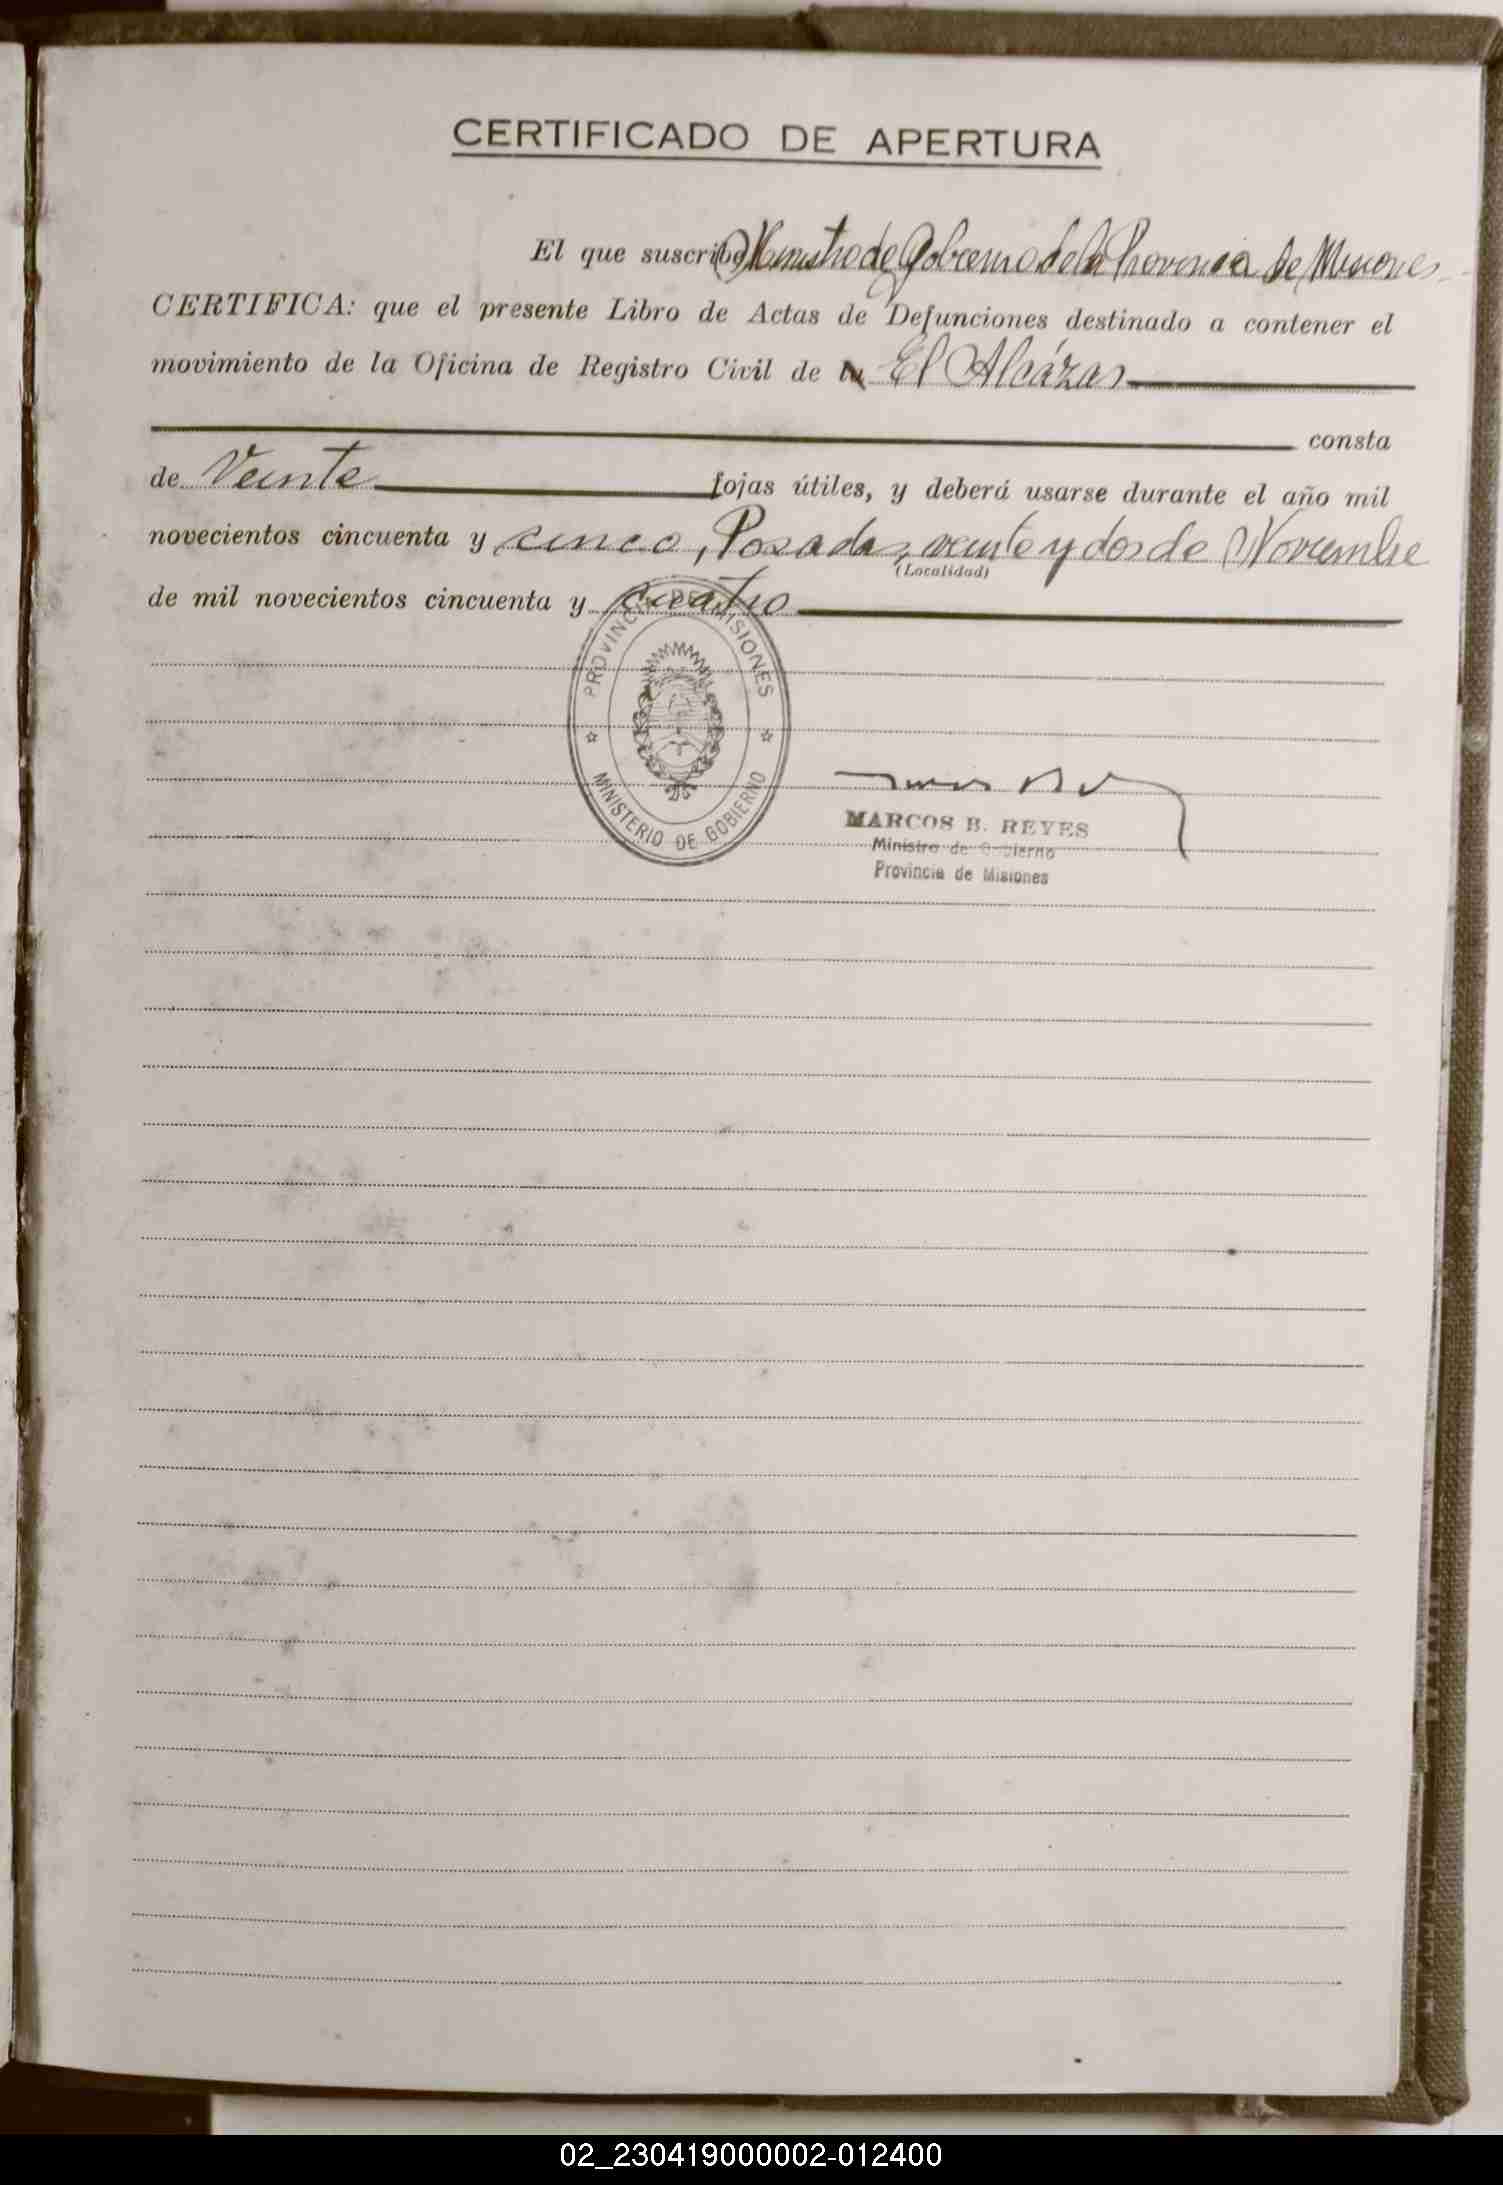 CERTIFICADO DE APERTURA
El que suscribe, Ministro de Gobierno de la Provincia de Misiones
CERTIFICA: que el presente Libro de Actas de Defunciones destinado a contener el
movimiento de la Oficina de Registro Civil de la El Alcázar
consta
de Veinte fojas útiles, y deberá usarse durante el año mil
novecientos cincuenta y cinco, Posadas, veinte y dos de Noviembre
(Localidad)
de mil novecientos cincuenta y cuatro
PROVINCIA DE MISIONES
MINISTERIO DE GOBIERNO
MARCOS B. REYES
Ministro de Gobierno
Provincia de Misiones
02_230419000002-012400